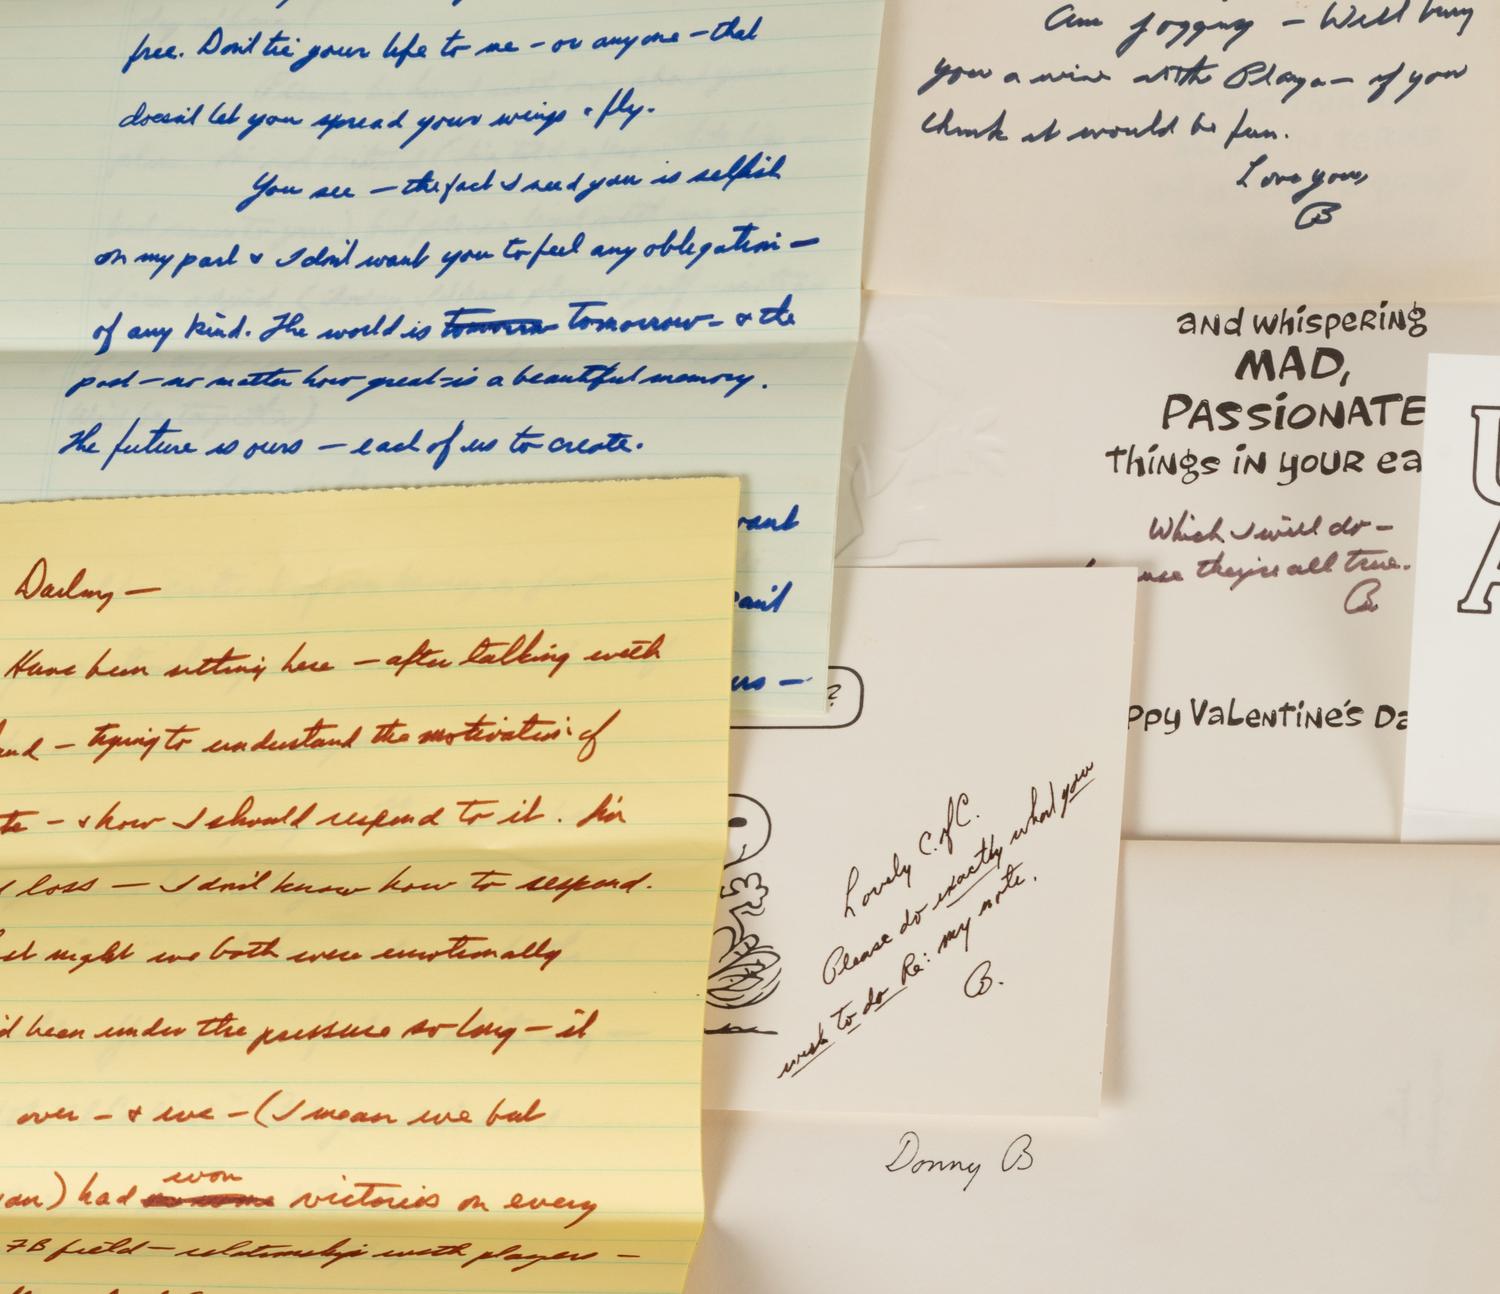 free. Don't tie your life to me - or anyone - that
doesn't let you spread your wings & fly.
You see - the fact I need you is selfish
on my part & I don't want you to feel any obligation -
of any kind. The world is tomorrow - & the
past - no matter how great - is a beautiful memory.
The future is ours - each of us to create.
want
ers -
Am jogging - Will buy
you a wine at the Playa - if you
think it would be fun.
Love you,
B
and whispering
MAD,
PASSIONATE
things in your ea
Which I will do -
use they're all true.
B
ppy Valentine's Da
U
A
?
Lovely C. of C.
Please do exactly what you
wish to do Re: my note.
B.
Donny B
Darling -
Have been sitting here - after talking with
and - trying to understand the motivation of
te - & how I should respond to it. I'm
loss - I don't know how to respond.
st night we both were emotionally
'd been under the pressure so long - it
over - & we - (I mean we but
) had won victories on every
FB field - relationship with players -